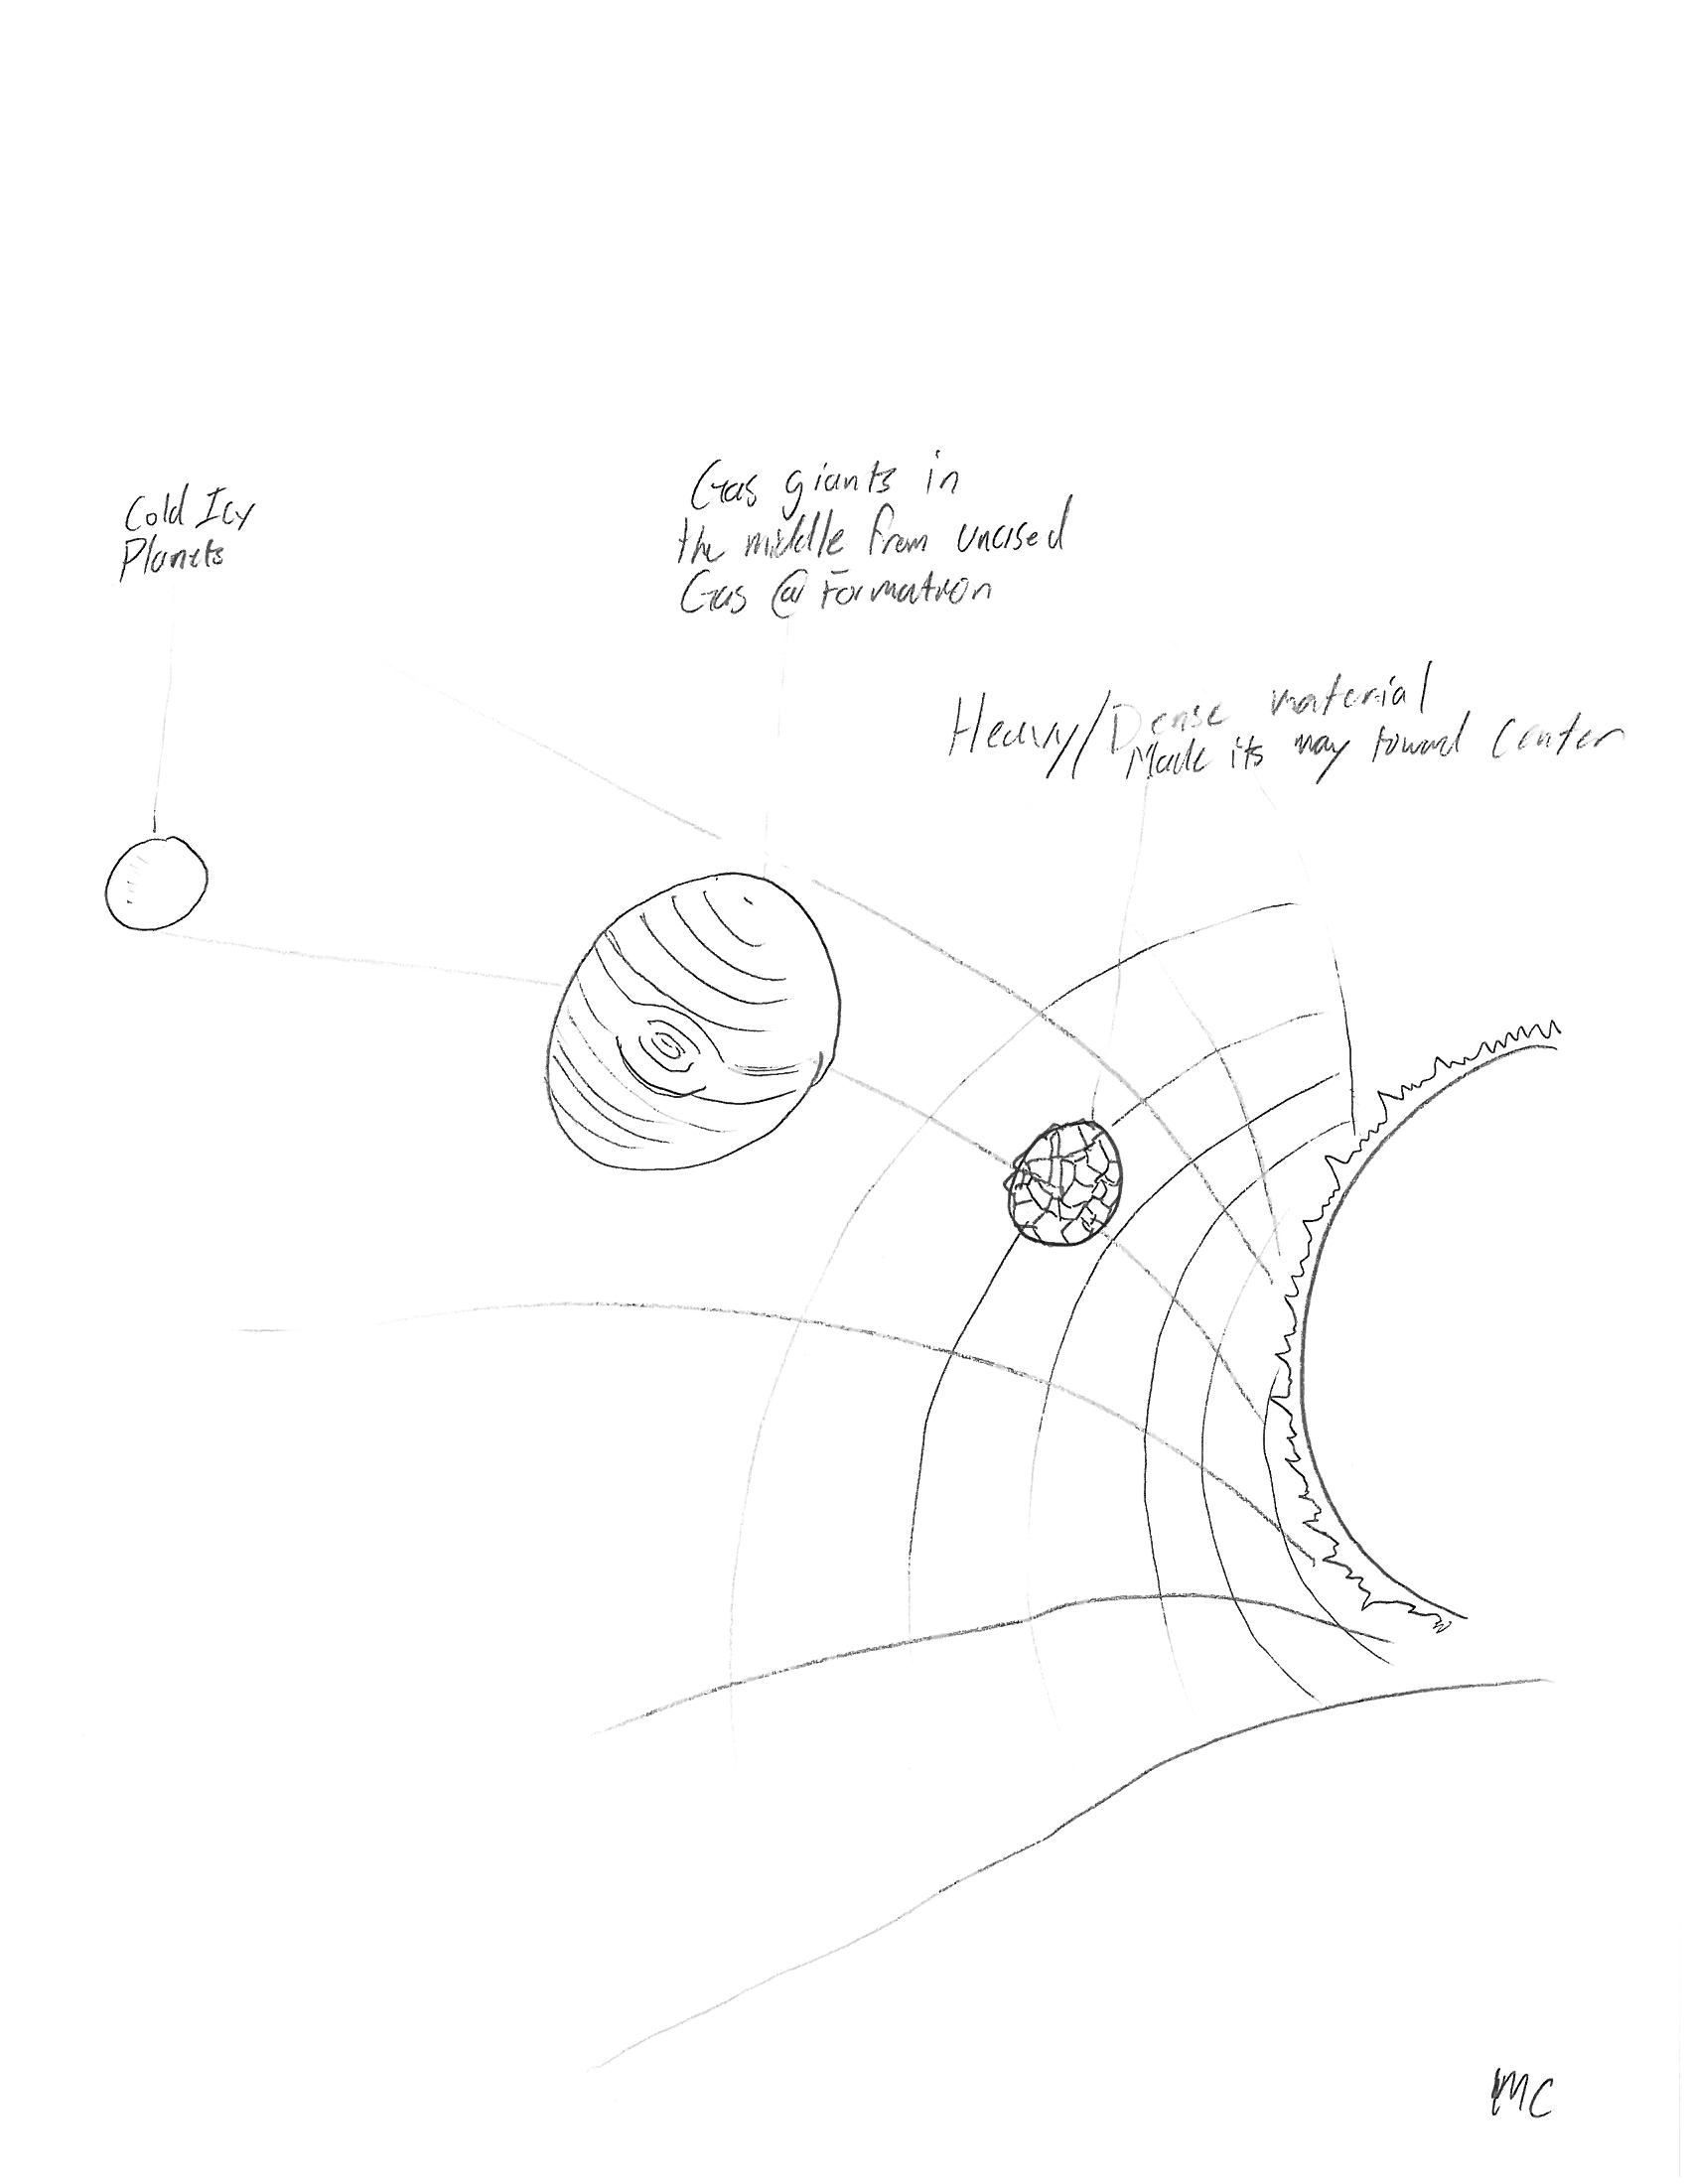 Cold Icy
Planets
Gas giants in
the middle from unused
Gas @ Formation
Heavy/Dense material
Made its way toward center
MC